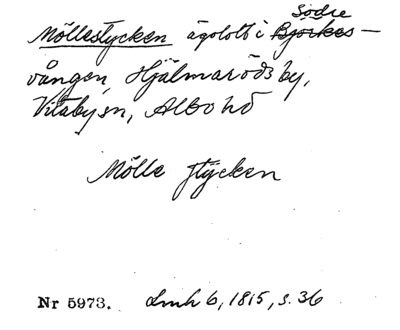 Södre
Möllestycken ägolott i Björkes-
vången, Hjälmaröds by,
Vitaby sn, Albo hd
Mölle stycken
Nr 5973. Lmh 6, 1815, s. 36